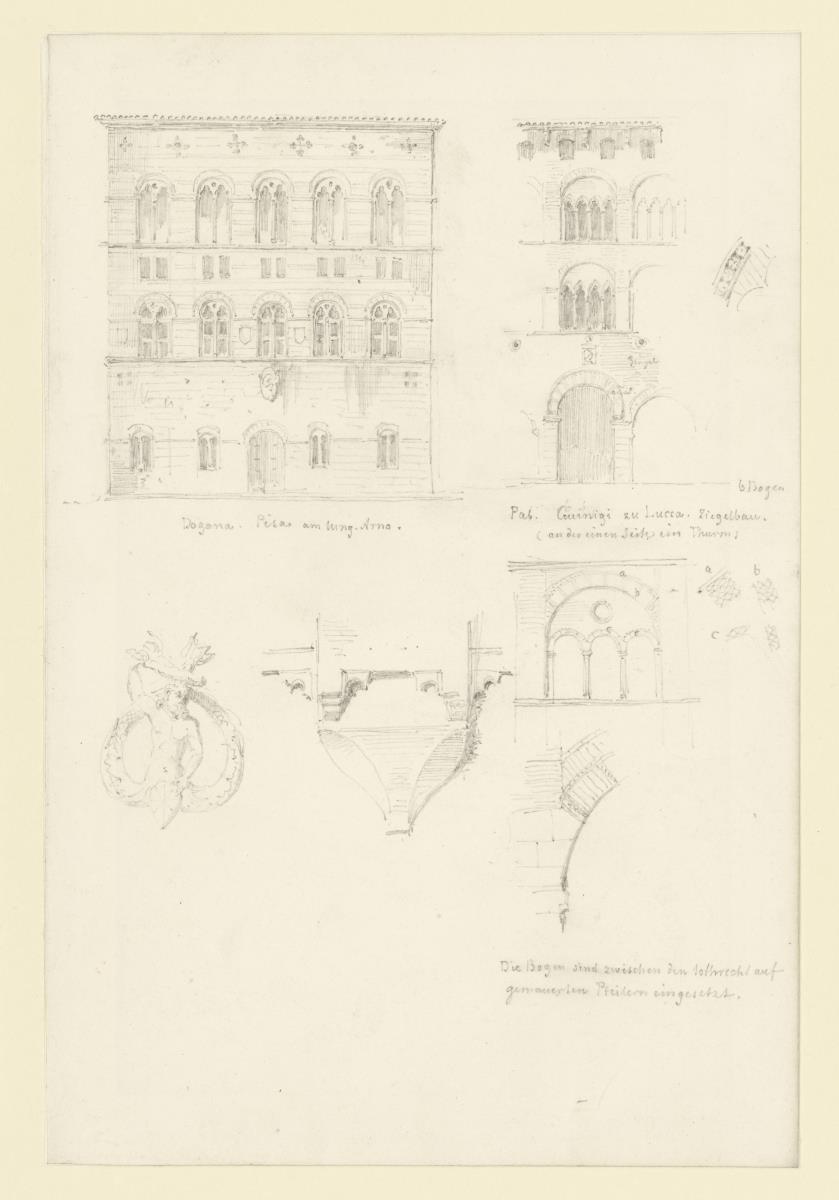 Ziegel
6 Bogen
Dogana. Pisa am lung. Arno.
Pal. Guinigi zu Lucca. Ziegelbau.
(an der einen Seite ein Thurm)
a
b
a b
c
c c
Die Bogen sind zwischen den lothrecht auf
gemauerten Pfeilern eingesetzt.